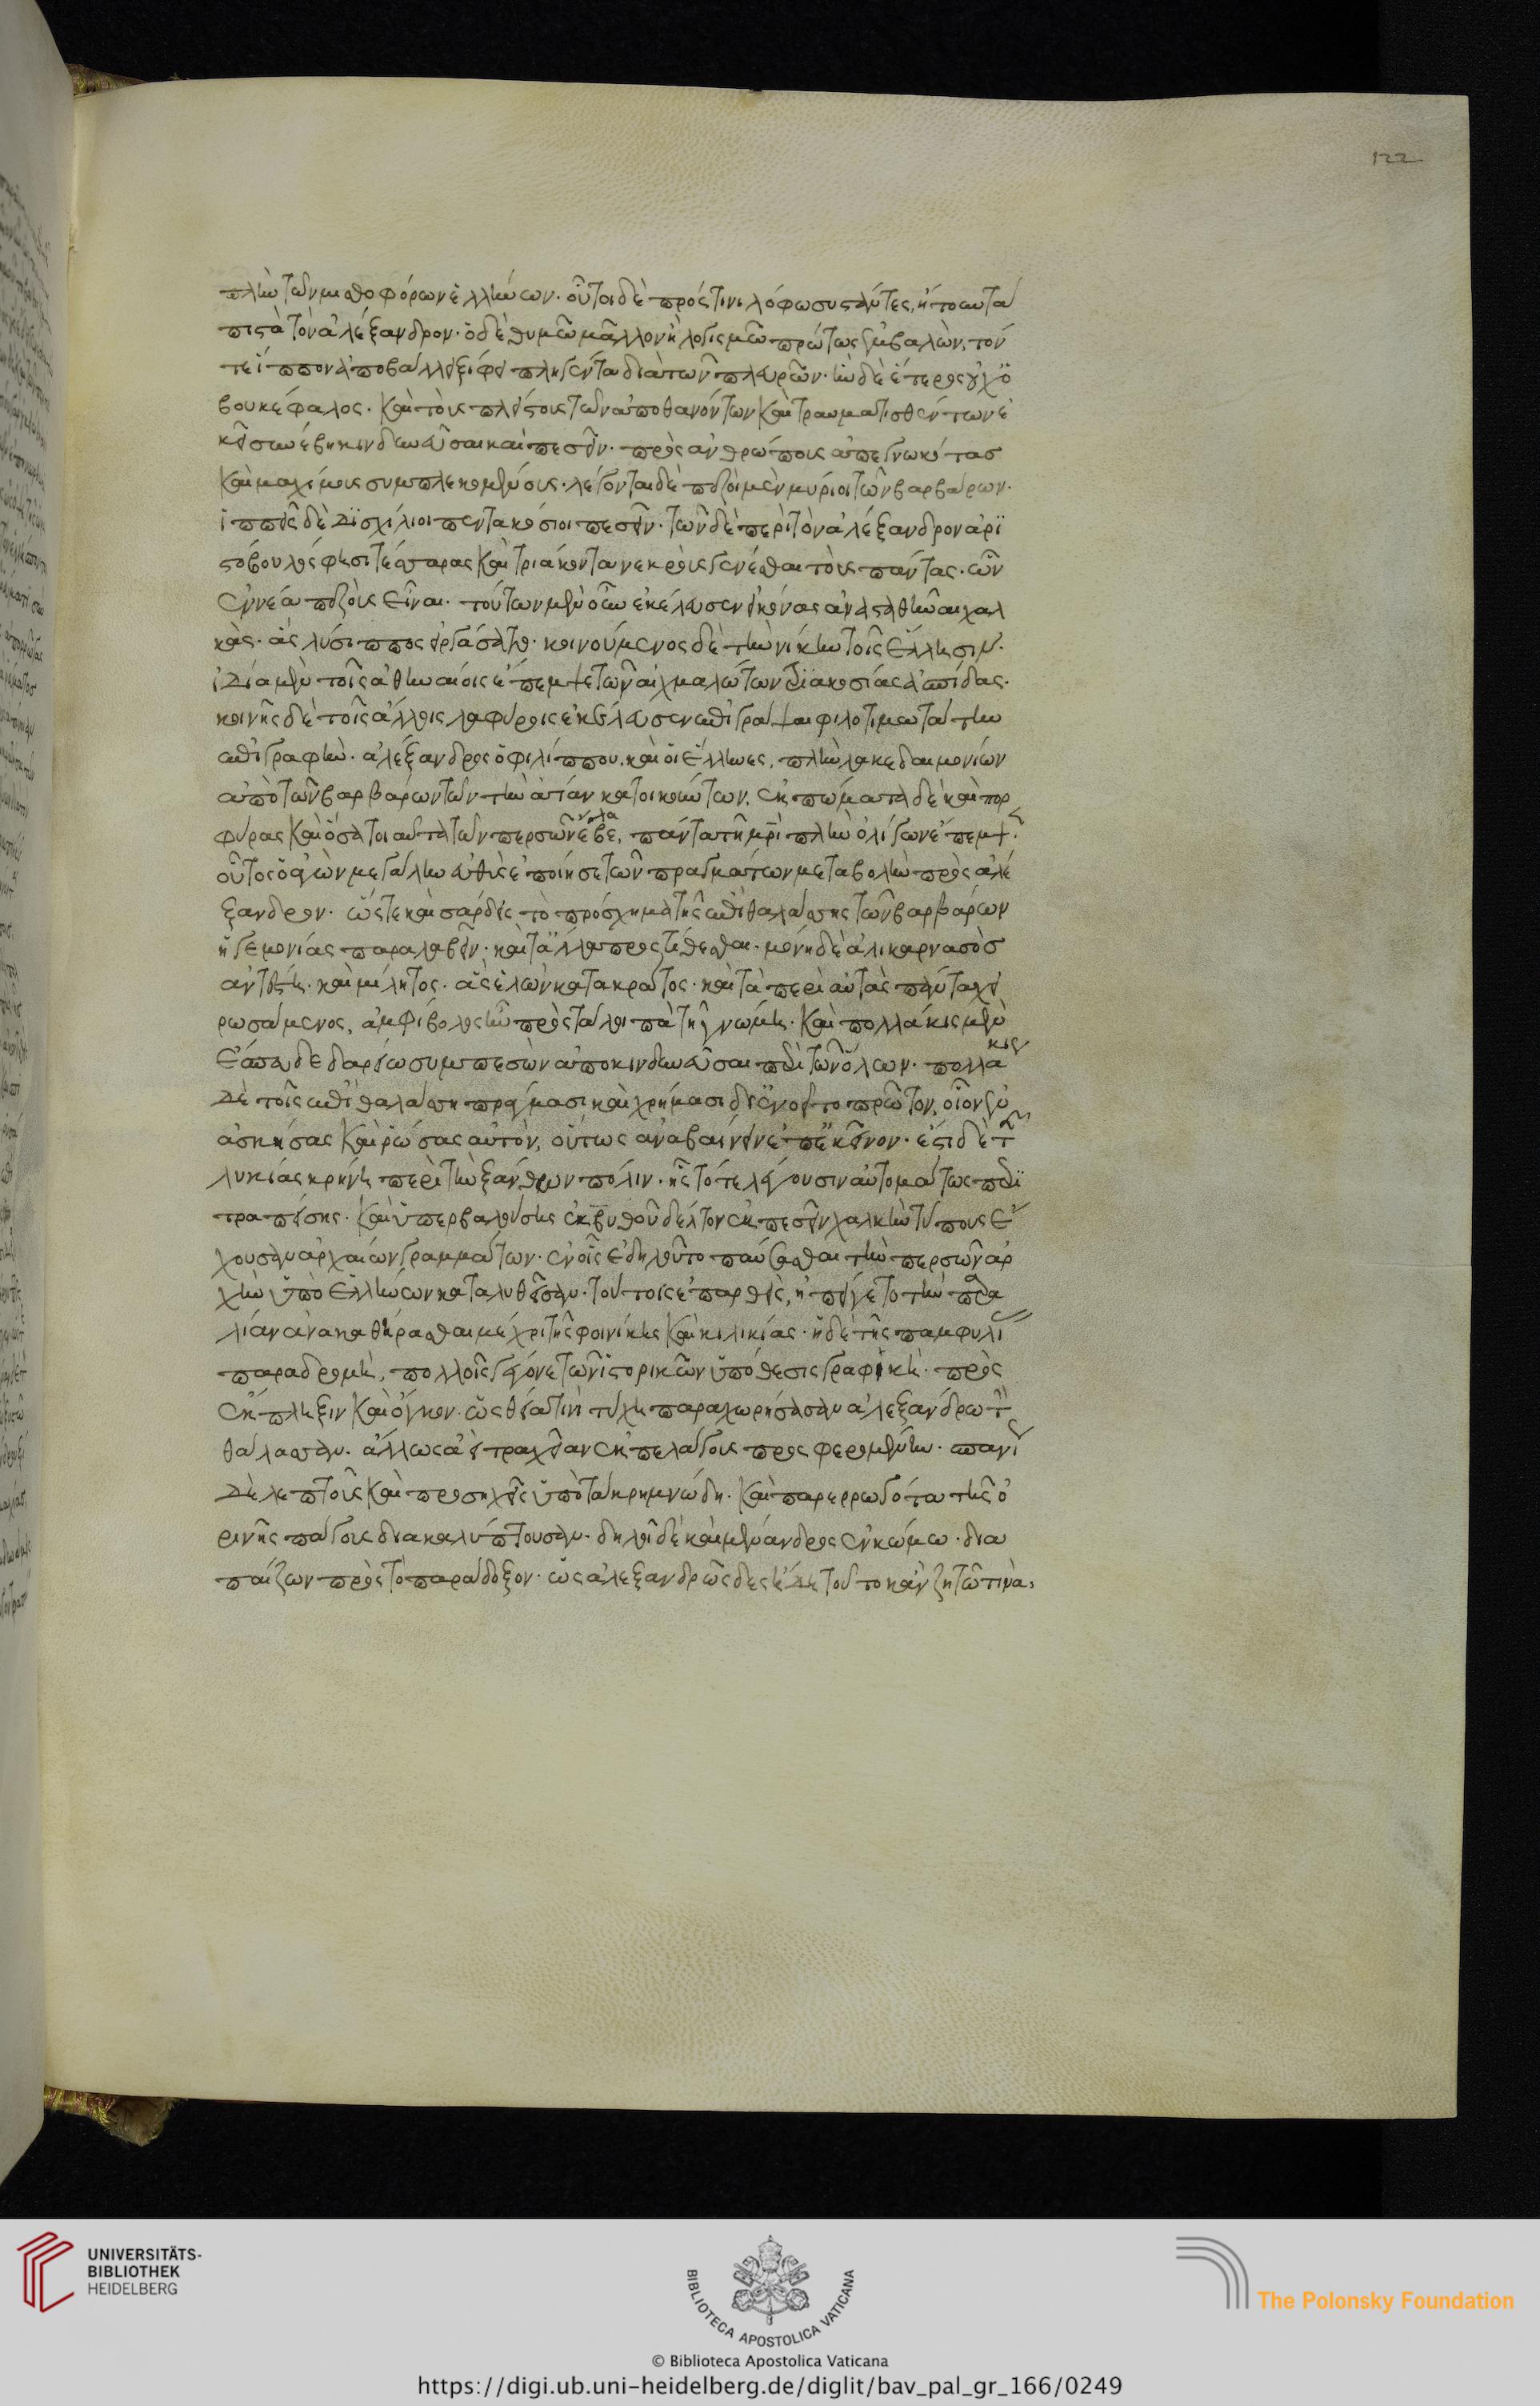 πλὴν τῶν μισθοφόρων ἑλλήνων. οὗτοι δὲ πρός τινι λόφω συστάντες, ἤτουν τὰ
πιστὰ τὸν ἀλέξανδρον. ὁ δὲ θυμῶ μᾶλλον ἢ λογισμῶ πρῶτος ἐμβαλὼν, τόν
τε ἵππον ἀποβάλλει ξίφει πληγέντα διὰ τῶν πλευρῶν. ἦν δὲ ἕτερος οὐχ ὁ
βουκέφαλος. καὶ τοὺς πλείστους τῶν ἀποθανόντων καὶ τραυματισθέντων ἐ
κεῖ συνέβη κινδυνεῦσαι καὶ πεσεῖν. πρὸς ἀνθρώπους ἀπεγνωκότας
καὶ μαχίμους συμπλεκομένους. λέγονται δὲ πεζοὶ μὲν μύριοι τῶν βαρβάρων.
ἱππεῖς δὲ δισχίλιοι πεντακόσιοι πεσεῖν. τῶν δὲ περὶ τὸν ἀλέξανδρον ἀρι
στόβουλός φησι τέσσαρας καὶ τριάκοντα νεκροὺς γενέσθαι τοὺς πάντας. ὧν
ἐννέα πεζοὺς εἶναι. τούτων μὲν οὖν ἐκέλευσεν εἰκόνας ἀνασταθῆναι χαλ
κᾶς. ἃς λύσιππος εἰργάσατο. κοινούμενος δὲ τὴν νίκην τοῖς ἕλλησιν.
ἰδία μὲν τοῖς ἀθηναίοις ἔπεμψε τῶν αἰχμαλώτων διακοσίας ἀσπίδας.
κοινῆ δὲ τοῖς ἄλλοις λαφύροις ἐκέλευσεν ἐπιγράψαι φιλοτιμωτάτην
ἐπιγραφὴν. ἀλέξανδρος ὁ φιλίππου καὶ οἱ ἕλληνες, πλὴν λακεδαιμονίων
ἀπὸ τῶν βαρβάρων τῶν τὴν ἀσίαν κατοικούντων. ἐκπώματα δὲ καὶ πορ
φύρας καὶ ὅσα τοιαῦτα τῶν περσῶν ἔλαβε, πάντα τῆ μρὶ πλὴν ὀλίγων ἔπεμψεν.
οὗτος ὁ ἀγὼν μεγάλην εὐθὺς ἐποίησε τῶν πραγμάτων μεταβολὴν πρὸς ἀλέ
ξανδρον. ὥστε καὶ σάρδεις τὸ πρόσχημα τῆς ἐπὶ θαλάσσης τῶν βαρβάρων
ἡγεμονίας παραλαβεῖν. καὶ τἄλλα προστίθεσθαι. μόνη δὲ ἁλικαρνασὸς
ἀντέστη. καὶ μίλητος. ἃς ἑλὼν κατακράτος. καὶ τὰ περὶ αὐτὰς πάντα χει
ρωσάμενος, ἀμφίβολος ἦν πρὸς τὰ λοιπὰ τῆ γνώμη. καὶ πολλάκις μὲν
ἔσπευδε δαρείω συμπεσὼν ἀποκινδυνεῦσαι περὶ τῶν ὅλων. πολλάκις
δὲ τοῖς ἐπὶ θαλάσση πράγμασι καὶ χρήμασι διενοεῖτο πρῶτον, οἷον ἐν
ασκήσας καὶ ῥώσας αὑτὸν, οὕτως ἀναβαίνειν ἐπ' ἐκεῖνον. ἔστι δὲ τῆς
λυκίας κρήνη περὶ τὴν ξανθίων πόλιν. ἧς τότε λέγουσιν αὐτομάτως περι
τραπείσης. καὶ ὑπερβαλούσης ἐκ βυθοῦ δέλτον ἐκπεσεῖν χαλκῆν τύπους ἔ
χουσαν ἀρχαίων γραμμάτων. ἐν οἷς ἐδηλοῦτο παύσασθαι τὴν περσῶν ἀρ
χὴν ὑπὸ ἑλλήνων καταλυθεῖσαν. τούτοις ἐπαρθεὶς, ἠπείγετο τὴν παρα
λίαν ἀνακαθήρασθαι μέχρι τῆς φοινίκης καὶ κιλικίας. ἡ δὲ τῆς παμφυλί
παραδρομὴ, πολλοῖς γέγονε τῶν ἱστορικῶν ὑπόθεσις γραφικὴ. πρὸς
ἔκπληξιν καὶ ὄγκον. ὡς θεία τινὶ τύχη παραχωρήσασαν ἀλεξάνδρω τὴν
θάλασσαν. ἄλλως ἀεὶ τραχεῖαν ἐκ πελάγους προσφερομένην. σπανί
δὲ λεπτοὺς καὶ προσηχεῖς ὑπὸ τὰ κρημνώδη. καὶ παρερρωγότα τῆς ὀ
ρεινῆς πάγους διακαλύπτουσαν. δηλοῖ δὲ καὶ μένανδρος ἐν κώμω. δια
παίζων πρὸς τὸ παράδοξον. ὡς ἀλεξανδρῶδες ἤδη τοῦτο κἂν ζητῶ τινὰ,
122
UNIVERSITÄTS-
BIBLIOTHEK
HEIDELBERG
BIBLIOTECA APOSTOLICA VATICANA
The Polonsky Foundation
© Biblioteca Apostolica Vaticana
https://digi.ub.uni-heidelberg.de/diglit/bav_pal_gr_166/0249